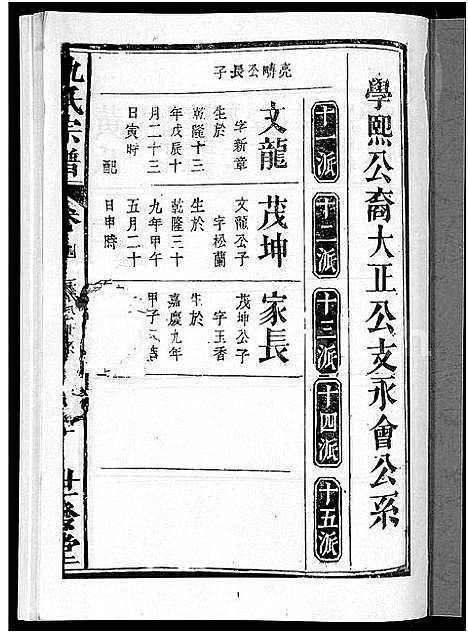 學熙公裔大正公支永會公系
十一派
十二派
十三派
十四派
十五派
亮疇公長子
文龍
字新章
生於
乾隆十三
年戊辰十
月二十三
日寅時
配
茂坤
文龍公子
字松蘭
生於
乾隆三十
九年甲午
五月二十
日申時
家長
茂坤公子
字玉香
生於
嘉慶九年
甲子
氏宗譜
卷
世
堂
1